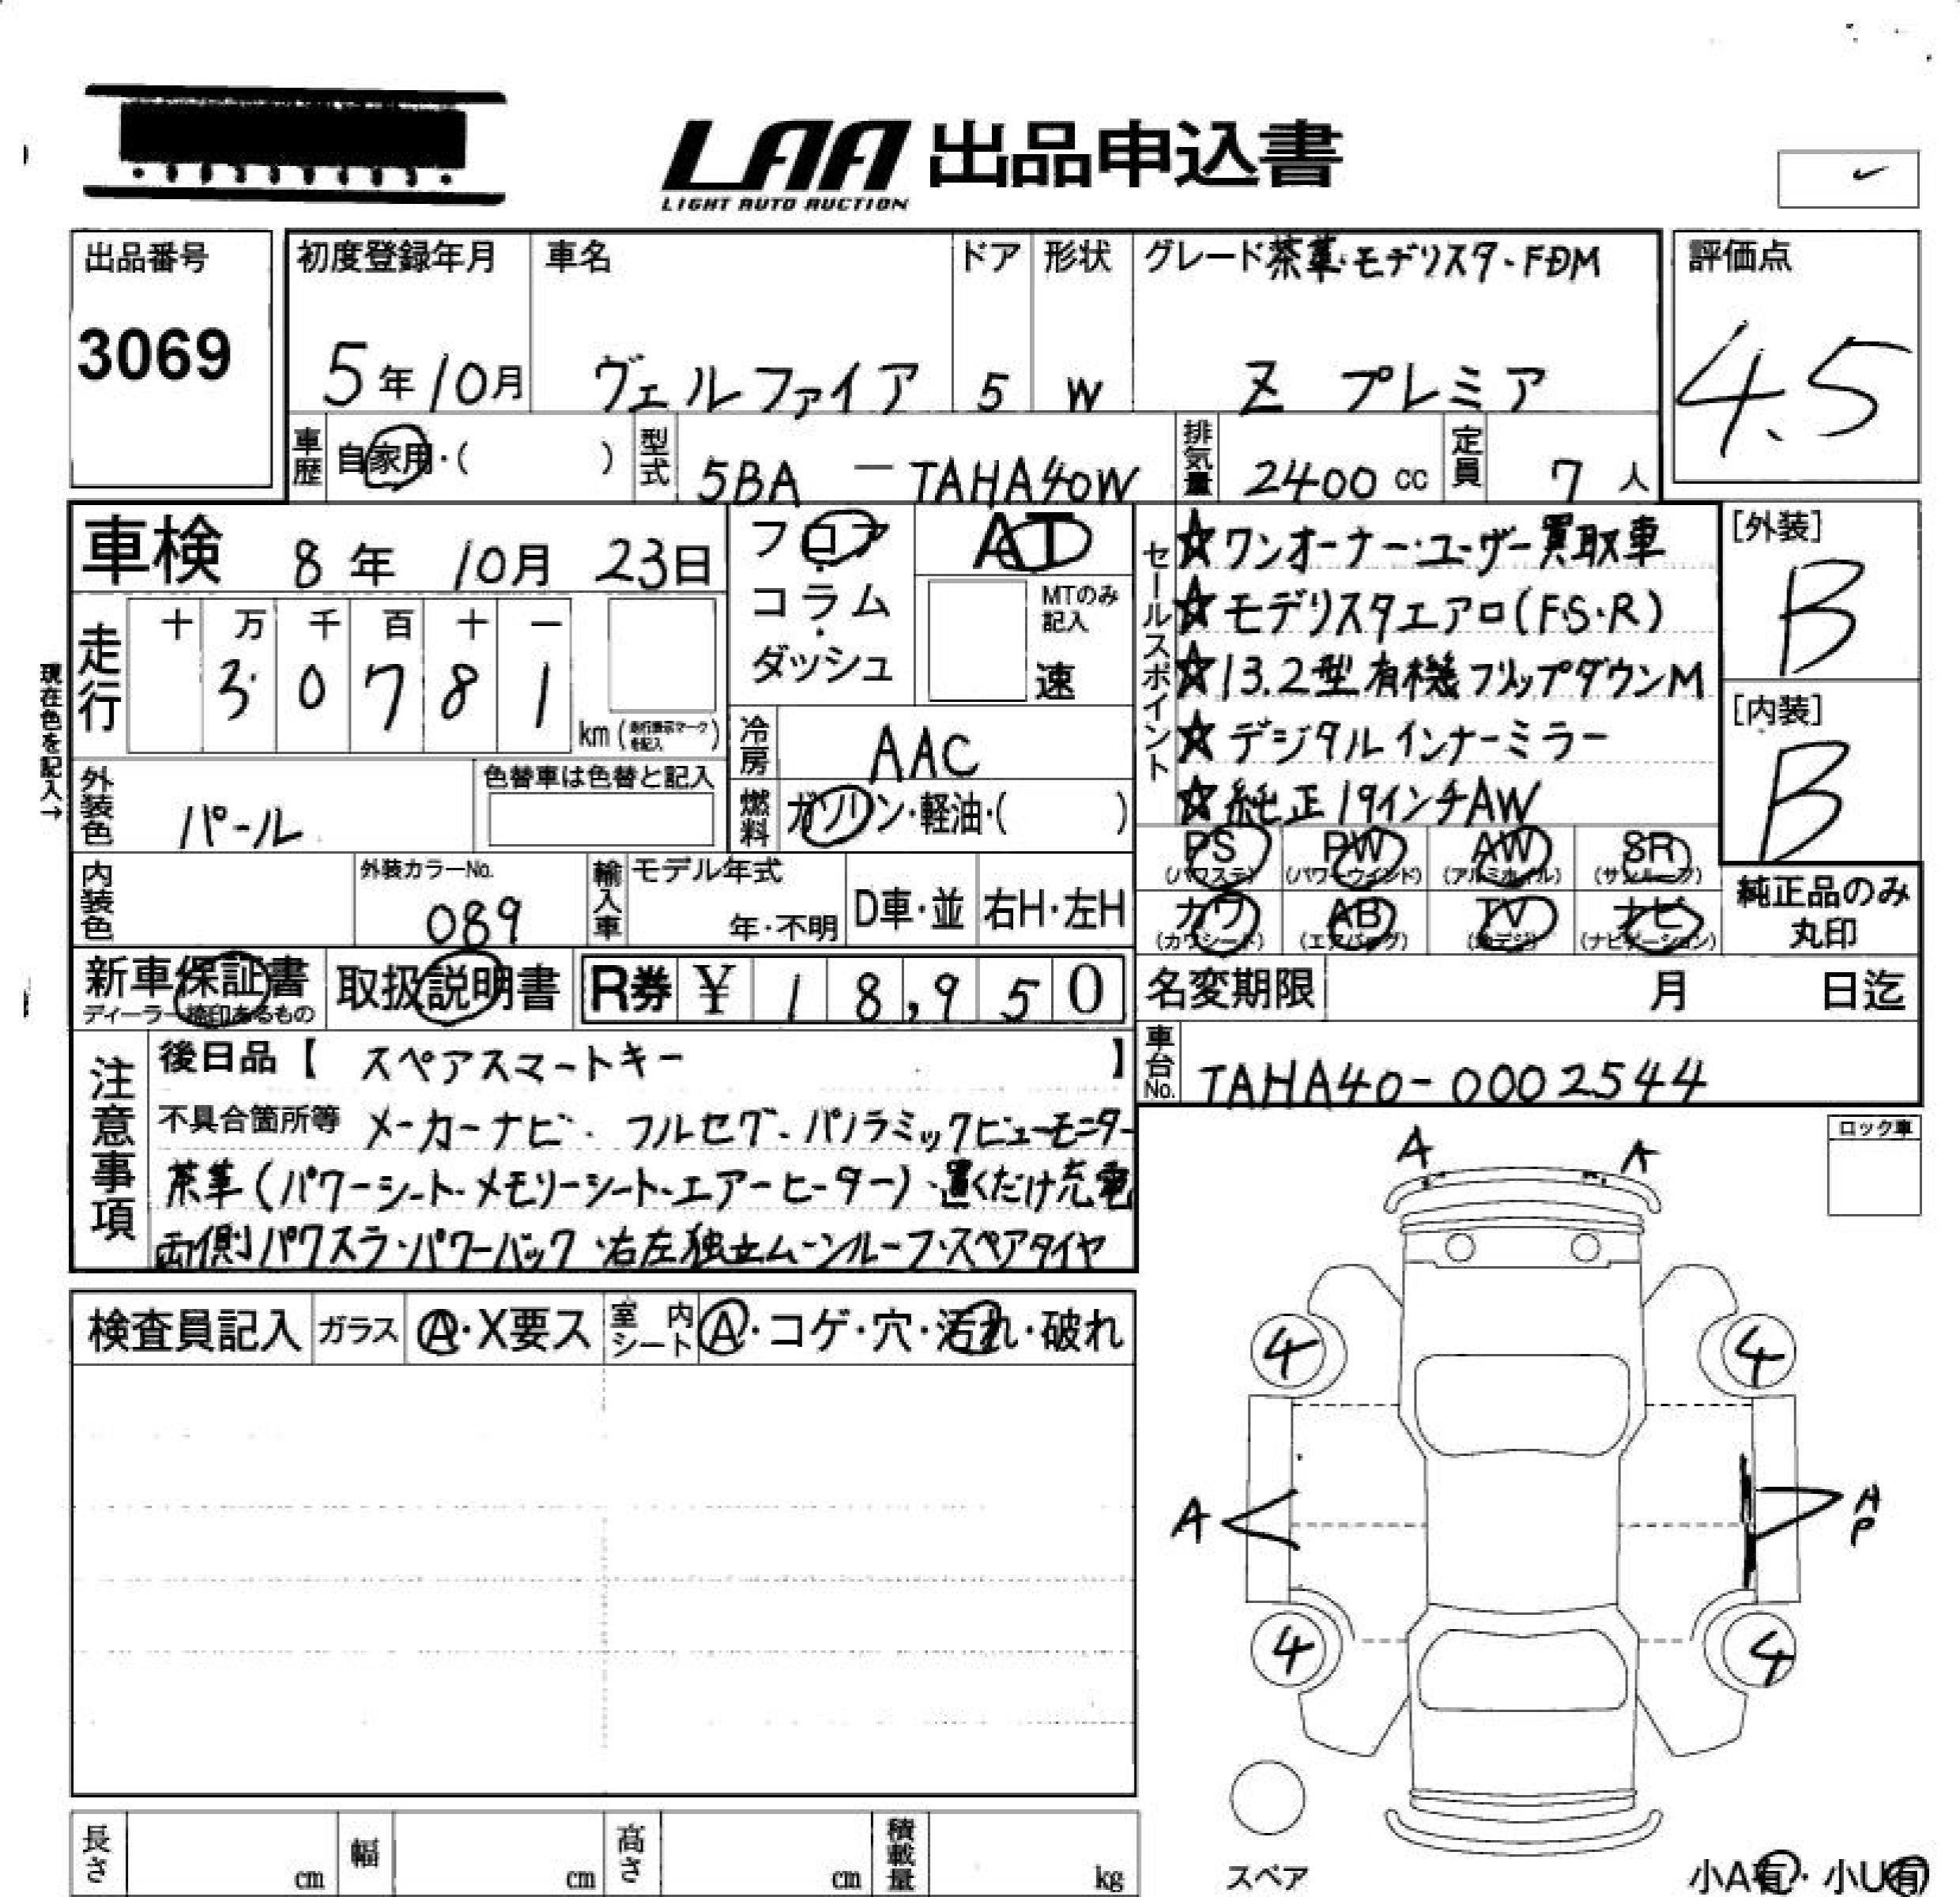 LAA 出品申込書
LIGHT AUTO AUCTION
出品番号
3069
初度登録年月
5年10月
車名
ヴェルファイア
ドア
5
形状
W
グレード 茶革・モデリスタ・FDM
Z プレミア
評価点
4.5
車歴 自家用・( )
型式 5BA - TAHA40W
排気量 2400 cc
定員 7 人
車検 8年 10月 23日
フロア・コラム・ダッシュ
AT
MTのみ記入
速
セールスポイント
☆ワンオーナー・ユーザー買取車
☆モデリスタエアロ(F・S・R)
☆13.2型有機フリップダウンM
☆デジタルインナーミラー
☆純正19インチAW
[外装]
B
[内装]
B
現在色を記入→
走行 十 万 千 百 十 一
3 0 7 8 1
km(走行表示マークを記入)
冷房 AAC
燃料 ガソリン・軽油・( )
外装色 パール
色替車は色替と記入
内装色
外装カラーNo.
089
輸入車 モデル年式
年・不明
D車・並
右H・左H
PS (パワステ)
PW (パワーウインド)
AW (アルミホイル)
SR (サンルーフ)
カワ (カワシート)
AB (エアバッグ)
TV (地デジ)
ナビ (ナビゲーション)
純正品のみ
丸印
新車保証書
ディーラー捺印あるもの
取扱説明書
R券 ¥ 18,950
名変期限 月 日迄
車台No. TAHA40-0002544
注意事項
後日品【 スペアスマートキー 】
不具合箇所等 メーカーナビ・フルセグ・パノラミックビューモニター
茶革(パワーシート・メモリーシート・エアーヒーター)・置くだけ充電
両側パワスラ・パワーバック・右左独立ムーンルーフ・スペアタイヤ
ロック車
A A
検査員記入
ガラス A・X要ス
室内シート A・コゲ・穴・汚れ・破れ
4 4
A
A
P
4 4
長さ cm
幅 cm
高さ cm
積載量 kg
スペア
小A有・小U有